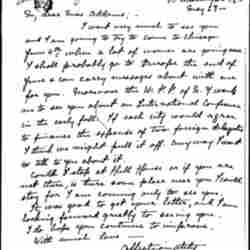 May 29
My dear Miss Addams,
I want very much to see you
and I am going to try to come to Chicago
June 6th when a lot of women are going over.
I shall probably go to Europe the end of
June & can carry messages about with me
for you. Moreover the W.P.P. of
want to see you about an International Conference
in the early fall. If each city would agree
to finance the expenses of two foreign delegates
I think we might pull it off. Anyway I want
to talk to you about it.
Could I stop at Hull House or if you are
not there, is there some place near you I could
stay for I am coming only to see you.
It was good to get your letter, and I am
looking forward greatly to seeing you.
I do hope you continue to improve.
With much love —